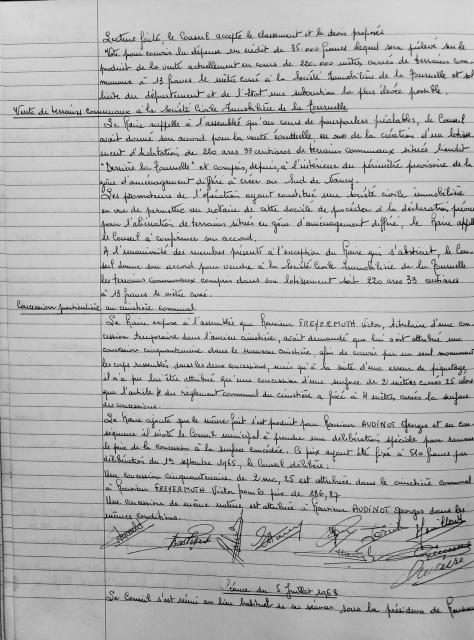 Lecture faite, le Conseil accepte le classement et le devis proposé
Vote pour couvrir la dépense un crédit de 35.000 francs lequel sera prélevé sur le
produit de la vente actuellement en cours de 220.000 mètres carrés de terrains com-
munaux à 13 francs le mètre carré à la Société Immobilière de la Fournelle et sol
licite du département et de l'Etat une subvention la plus élevée possible.
Vente de terrains communaux à la Société Civile Immobilière de la Fournelle
Le Maire rappelle à l'assemblée qu'au cours de pourparlers préalables, le Conseil
avait donné son accord pour la vente éventuelle, en vue de la création d'un lotisse
ment d'habitation de 220 ares 33 centiares de terrains communaux situés lieudit
"Derrière la Fournelle" et compris, depuis, à l'intérieur du périmètre provisoire de la
zône d'aménagement différé à créer au Sud de Nancy.
Les promoteurs de l'opération ayant constitué une société civile immobilière
en vue de permettre au notaire de cette société de procéder à la déclaration préala
pour l'aliénation de terrains situés en zône d'aménagement différé, le Maire appelle
le Conseil à confirmer son accord.
A l'unanimité des membres présents à l'exception du Maire qui s'abstient, le Con-
seil donne son accord pour vendre à la Société Civile Immobilière de la Fournelle
les terrains communaux compris dans son lotissement soit 220 ares 33 centiares
à 13 francs le mètre carré.
Concession particulière au cimetière communal
Le Maire expose à l'assemblée que Monsieur FREYERMUTH Victor, titulaire d'une con-
cession temporaire dans l'ancien cimetière, avait demandé que lui soit attribué une
concession cinquantenaire dans le nouveau cimetière, afin de couvrir par un seul monument
les corps rassemblés dans les deux concessions, mais qu'à la suite d'une erreur de piquetage,
il n'a pu lui être attribué qu'une concession d'une surface de 2 mètres carrés 25 alors
que l'article du règlement communal du cimetière a fixé à 4 mètres carrés la surface
des concessions.
Le Maire ajoute que le même fait s'est produit pour Monsieur AUDINOT Georges et en con-
séquence il invite le Conseil municipal à prendre une délibération spéciale pour ramener
le prix de la concession à la surface concédée. Ce prix ayant été fixé à 510 francs par
délibération du 1er septembre 1965, le Conseil délibère:
Une concession cinquantenaire de 2 mc, 25 est attribuée dans le cimetière communal
à Monsieur FREYERMUTH Victor pour le prix de 286,87
Une concession de même nature est attribuée à Monsieur AUDINOT Georges dans les
mêmes conditions.
Séance du 5 Juillet 1968
Le Conseil s'est réuni au lieu habituel de ses séances sous la présidence de Monsieur